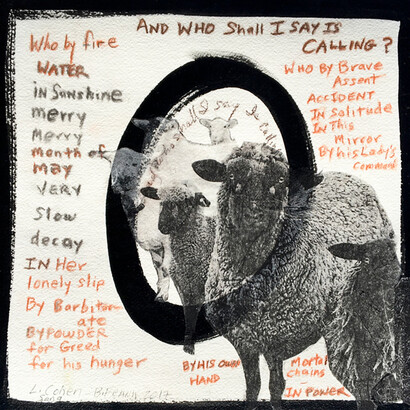 AND WHO Shall I SAY IS
CALLING?
Who by fire
WATER
in Sunshine
merry
Merry
month of
may
VERY
Slow
decay
IN Her
lonely slip
By Barbitur
ate
BY POWDER
for Greed
for his hunger
WHO BY BRAVE
Assent
ACCIDENT
IN Solitude
IN This
Mirror
By his LADY'S
Command
Shall I say Is Calling
BY HIS OWN
HAND
Mortal
Chains
IN POWER
L. Cohen
2017